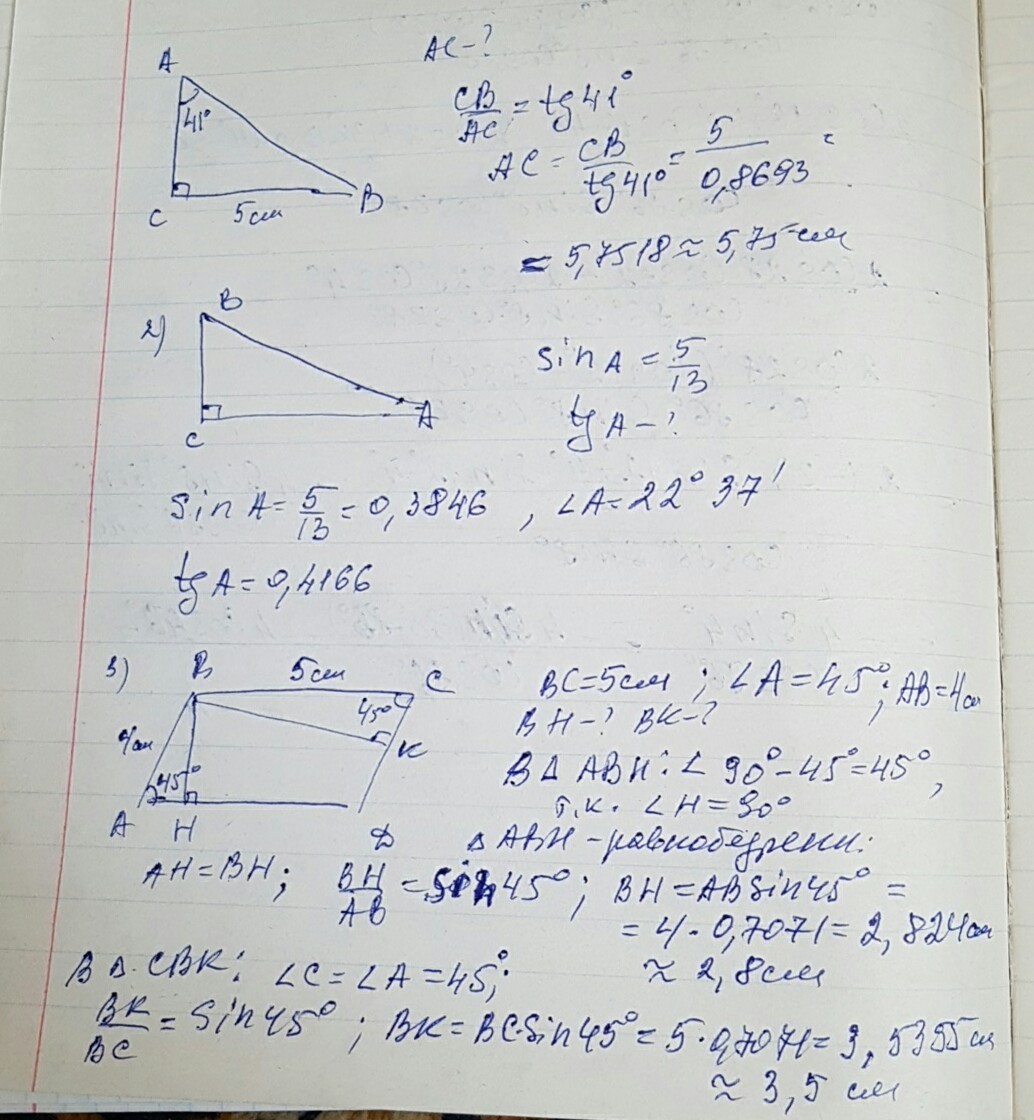 AC-?
A
41°
C
5см
B
CB/AC = tg 41°
AC = CB/tg41° = 5/0,8693 =
= 5,7518 ≈ 5,75 см
2)
B
C
A
sin A = 5/13
tg A - ?
Sin A = 5/13 = 0,3846 , ∠A = 22° 37'
tg A = 0,4166
3)
B
5см
C
45°
4см
K
45°
A
H
D
BC=5см ; ∠A=45°; AB=4см
BH-? BK-?
В Δ ABH: ∠ 90°-45°=45°,
т.к. ∠H=90°
Δ ABH - равнобедренн.
AH=BH; BH/AB = Sin 45°; BH = AB Sin 45° =
= 4 · 0,7071 = 2,824см
≈ 2,8см
В Δ CBK: ∠C = ∠A = 45°;
BK/BC = Sin 45° ; BK = BC·Sin45° = 5·0,7071 = 3,5355см
≈ 3,5 см